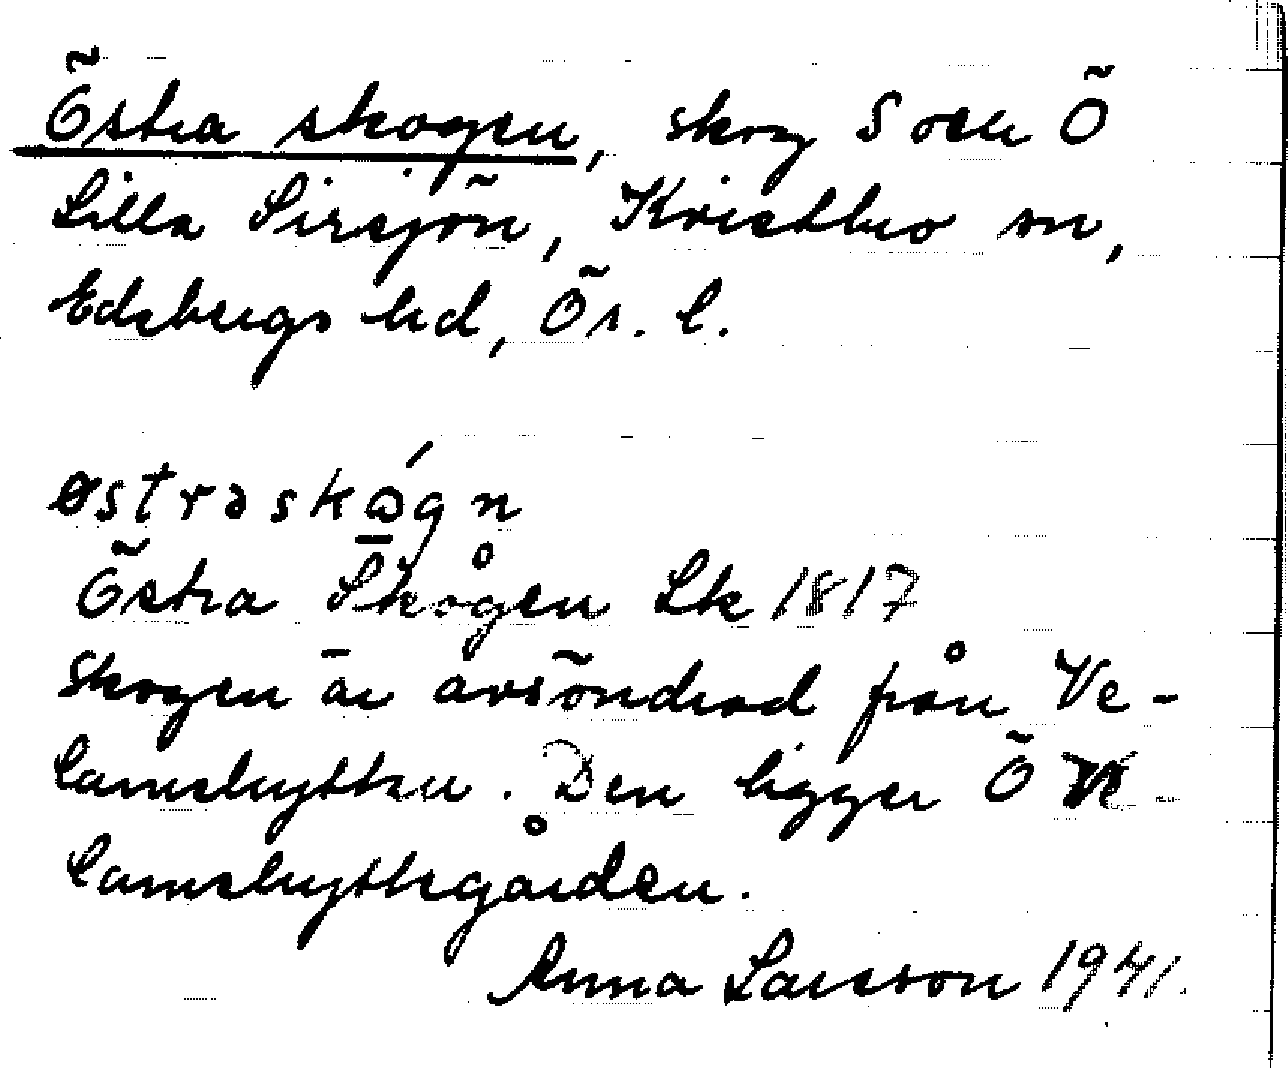 Östra skogen, skog S och Ö
Lilla Sirsjön, Kvistbro sn,
Edsbergs hd, Ör. l.
østrəskågn
Östra Skogen Lk 1817
Skogen är avsöndrad från Ve-
lamshyttan. Den ligger Ö Ve-
lamshyttegården.
Anna Larsson 1941.